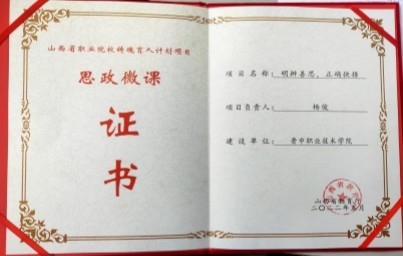 山西省职业院校铸魂育人计划项目
思政微课
证
书
项目名称：明辨善恶，正确抉择
项目负责人：杨俊
建设单位：晋中职业技术学院
山西省教育厅
二〇二二年 月